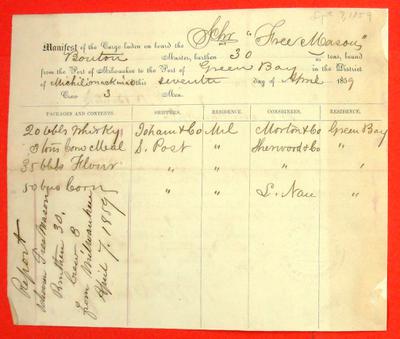 Apl 7, 1859
Manifest of the Cargo laden on board the Schr "Free Mason"
Bouton Master, burthen 30 tons, bound
from the Port of Milwaukee to the Port of Green Bay in the District
of Michilimackinac this seventh day of April 1859
Crew 3 Men.
PACKAGES AND CONTENTS. SHIPPERS. RESIDENCE. CONSIGNEES. RESIDENCE.
20 bbls Whisky & Co Mil Morton & Co Green Bay
3 tons Corn Meal S. Post " Sherwood & Co "
35 bbls Flour " " " "
50 bus Corn " " L. Nau "
Report
Schooner Free Mason
Burthen 30,
Crew 3
from Milwaukee
April 7. 1859